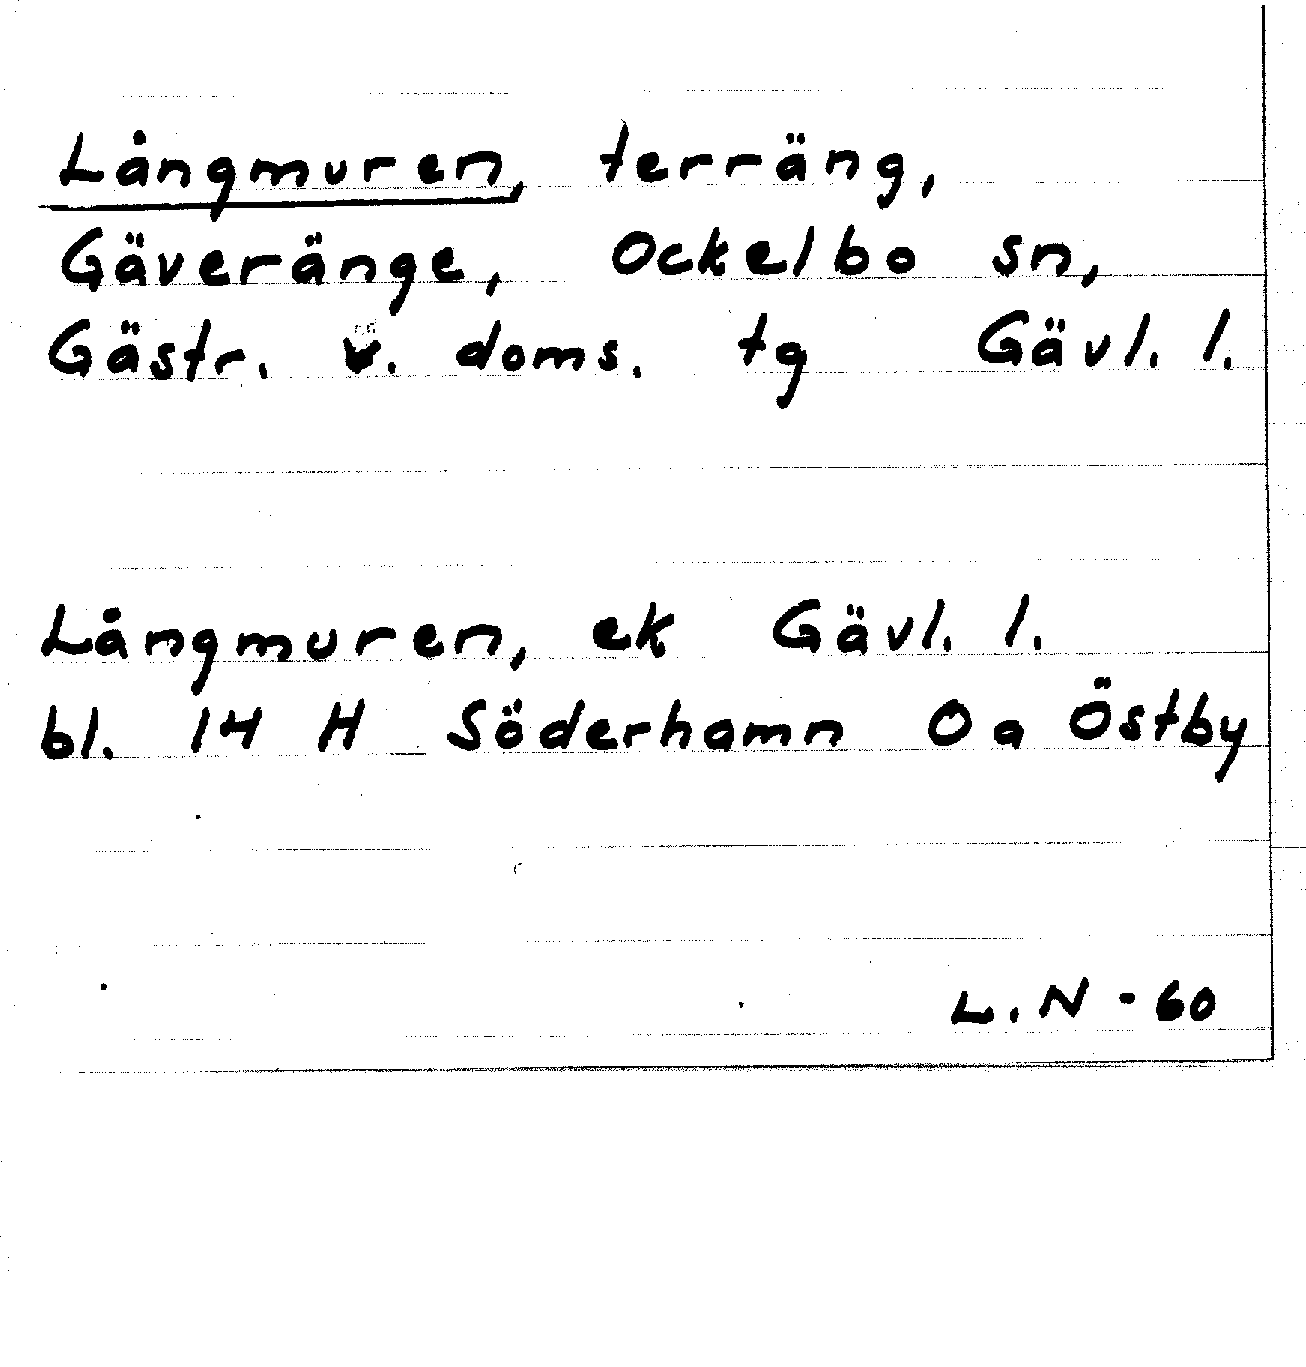 Långmuren, terräng,
Gäveränge, Ockelbo sn,
Gästr. v. doms. tg Gävl. l.
Långmuren, ek Gävl. l.
bl. 14 H Söderhamn 0 a Östby
L.N - 60